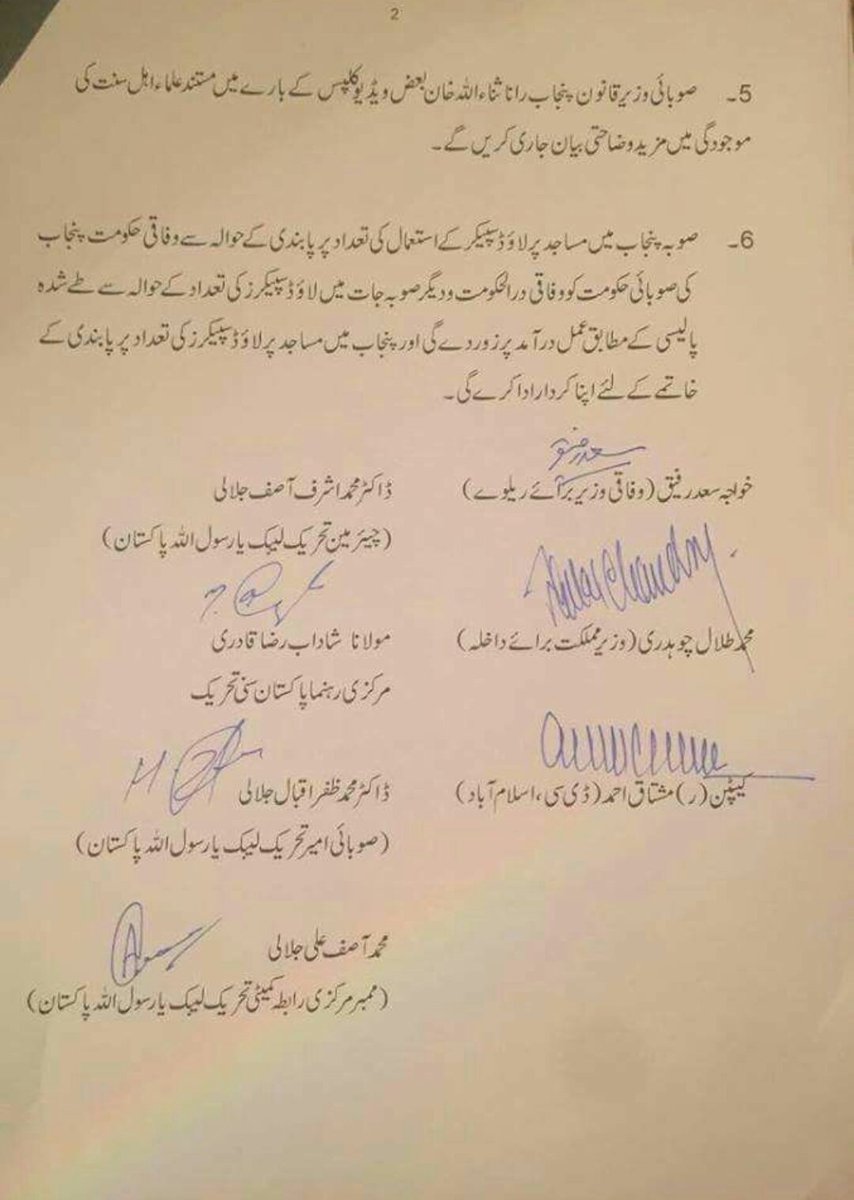 2
5۔ صوبائی وزیرِ قانون پنجاب رانا ثناء اللہ خان بعض ویڈیو کلپس کے بارے میں مستند علماء اہل سنت کی
موجودگی میں مزید وضاحتی بیان جاری کریں گے۔
6۔ صوبہ پنجاب میں مساجد پر لاؤڈ سپیکر کے استعمال کی تعداد پر پابندی کے حوالہ سے وفاقی حکومت پنجاب
کی صوبائی حکومت کو وفاقی درالحکومت و دیگر صوبہ جات میں لاؤڈ سپیکرز کی تعداد کے حوالہ سے طے شدہ
پالیسی کے مطابق عمل درآمد پر زور دے گی اور پنجاب میں مساجد پر لاؤڈ سپیکرز کی تعداد پر پابندی کے
خاتمے کے لئے اپنا کردار ادا کرے گی۔
سعد رفیق
خواجہ سعد رفیق (وفاقی وزیر برائے ریلوے)
ڈاکٹر محمد اشرف آصف جلالی
(چیئرمین تحریک لبیک یارسول اللہ پاکستان)
محمد طلال چوہدری (وزیر مملکت برائے داخلہ)
مولانا شاداب رضا قادری
مرکزی رہنما پاکستان سنی تحریک
کیپٹن (ر) مشتاق احمد (ڈی سی، اسلام آباد)
ڈاکٹر محمد ظفر اقبال جلالی
(صوبائی امیر تحریک لبیک یارسول اللہ پاکستان)
محمد آصف علی جلالی
(ممبر مرکزی رابطہ کمیٹی تحریک لبیک یارسول اللہ پاکستان)